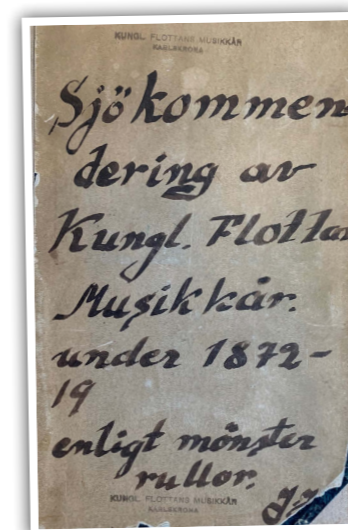 KUNGL. FLOTTANS MUSIKKÅR
KARLSKRONA
Sjökommen
dering av
Kungl. Flotta
Musikkår.
under 1872-
19
enligt mönster
rullor.
KUNGL. FLOTTANS MUSIKKÅR
KARLSKRONA